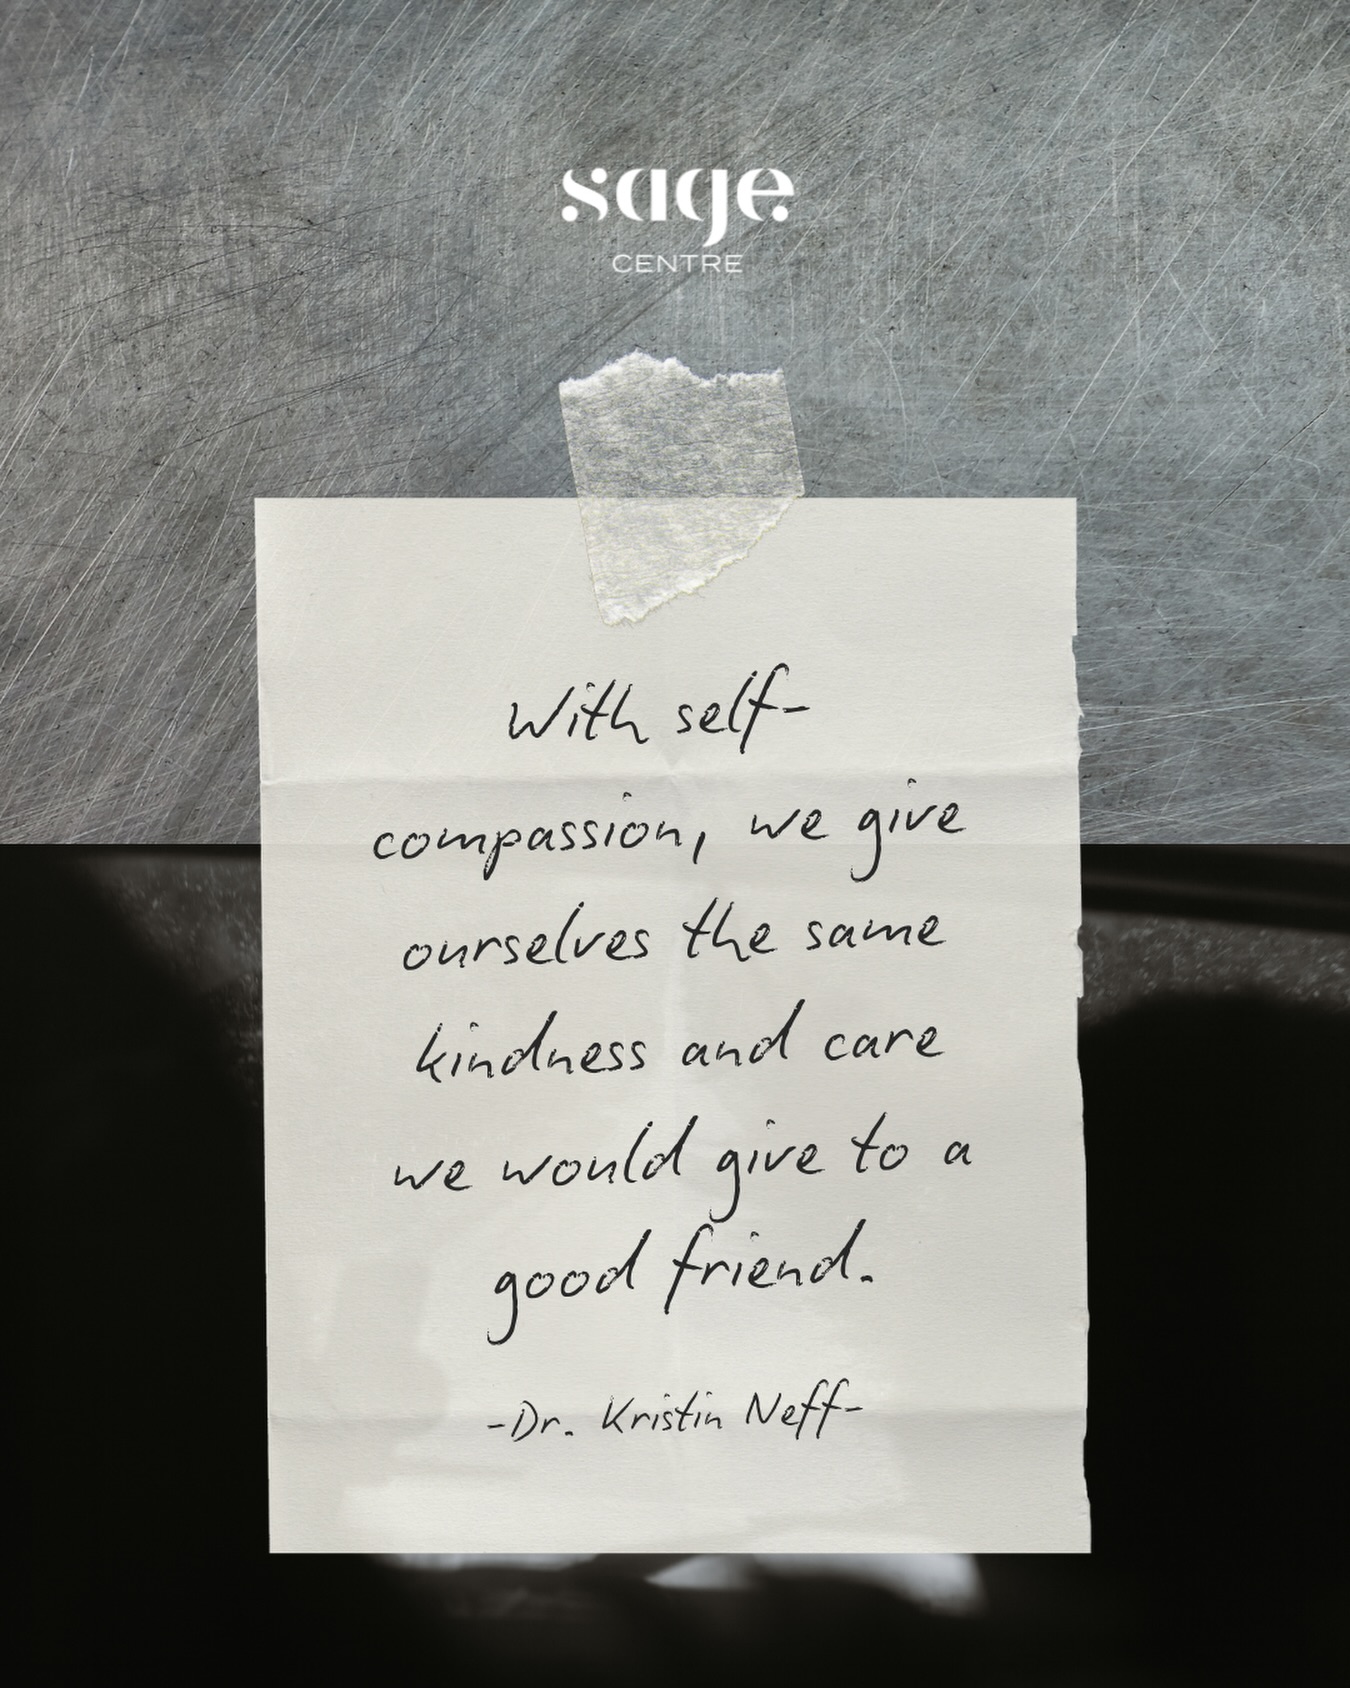 sage
CENTRE
With self-
compassion, we give
ourselves the same
kindness and care
we would give to a
good friend.
-Dr. Kristin Neff-